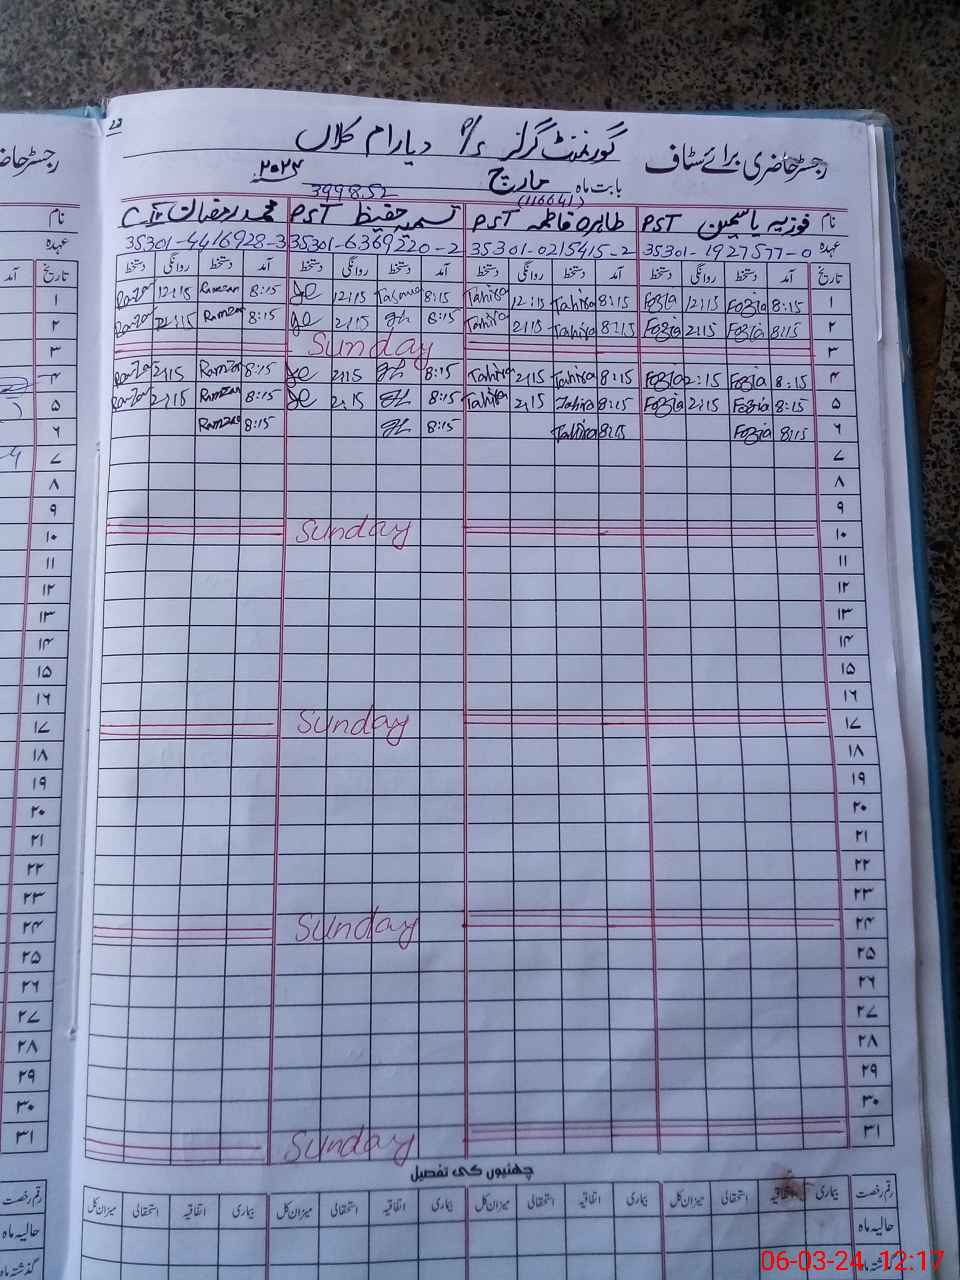 رجسٹر حاضری برائے سٹاف گورنمنٹ گرلز P/S دیارام کلاں
بابت ماہ مارچ ۲۰۲۴
(116641) 399852
نام فوزیہ یاسمین PST طاہرہ فاطمہ PST تسمیہ حفیظ PST محمد رمضان
عہدہ 35301-1927577-0 35301-0215415-2 35301-6369220-2 35301-4416928-3
تاریخ آمد دستخط روانگی دستخط آمد دستخط روانگی دستخط آمد دستخط روانگی دستخط آمد دستخط روانگی دستخط
۱ 8:15 Fozia 12:15 Fozia 8:15 Tahira 12:15 Tahira 8:15 12:15 8:15 Ramzan 12:15
۲ 8:15 Fozia 2:15 Fozia 8:15 Tahira 2:15 Tahira 8:15 2:15 8:15 Ramzan
۳ Sunday
۴ 8:15 Fozia 2:15 Fozia 8:15 Tahira 2:15 Tahira 8:15 2:15 8:15 Ramzan 2:15
۵ 8:15 Fozia 2:15 Fozia 8:15 Tahira 2:15 Tahira 8:15 2:15 8:15 Ramzan 2:15
۶ 8:15 Fozia 8:15 Tahira 8:15 8:15 Ramzan
۷
۸
۹
۱۰ Sunday
۱۱
۱۲
۱۳
۱۴
۱۵
۱۶
۱۷ Sunday
۱۸
۱۹
۲۰
۲۱
۲۲
۲۳
۲۴ Sunday
۲۵
۲۶
۲۷
۲۸
۲۹
۳۰
۳۱ Sunday
چھٹیوں کی تفصیل
رقم رخصت بیماری اتفاقیہ استحقاقی میزان کل بیماری اتفاقیہ استحقاقی میزان کل بیماری اتفاقیہ استحقاقی میزان کل بیماری اتفاقیہ استحقاقی میزان کل
حالیہ ماہ
گذشتہ ماہ
06-03-24 12:17